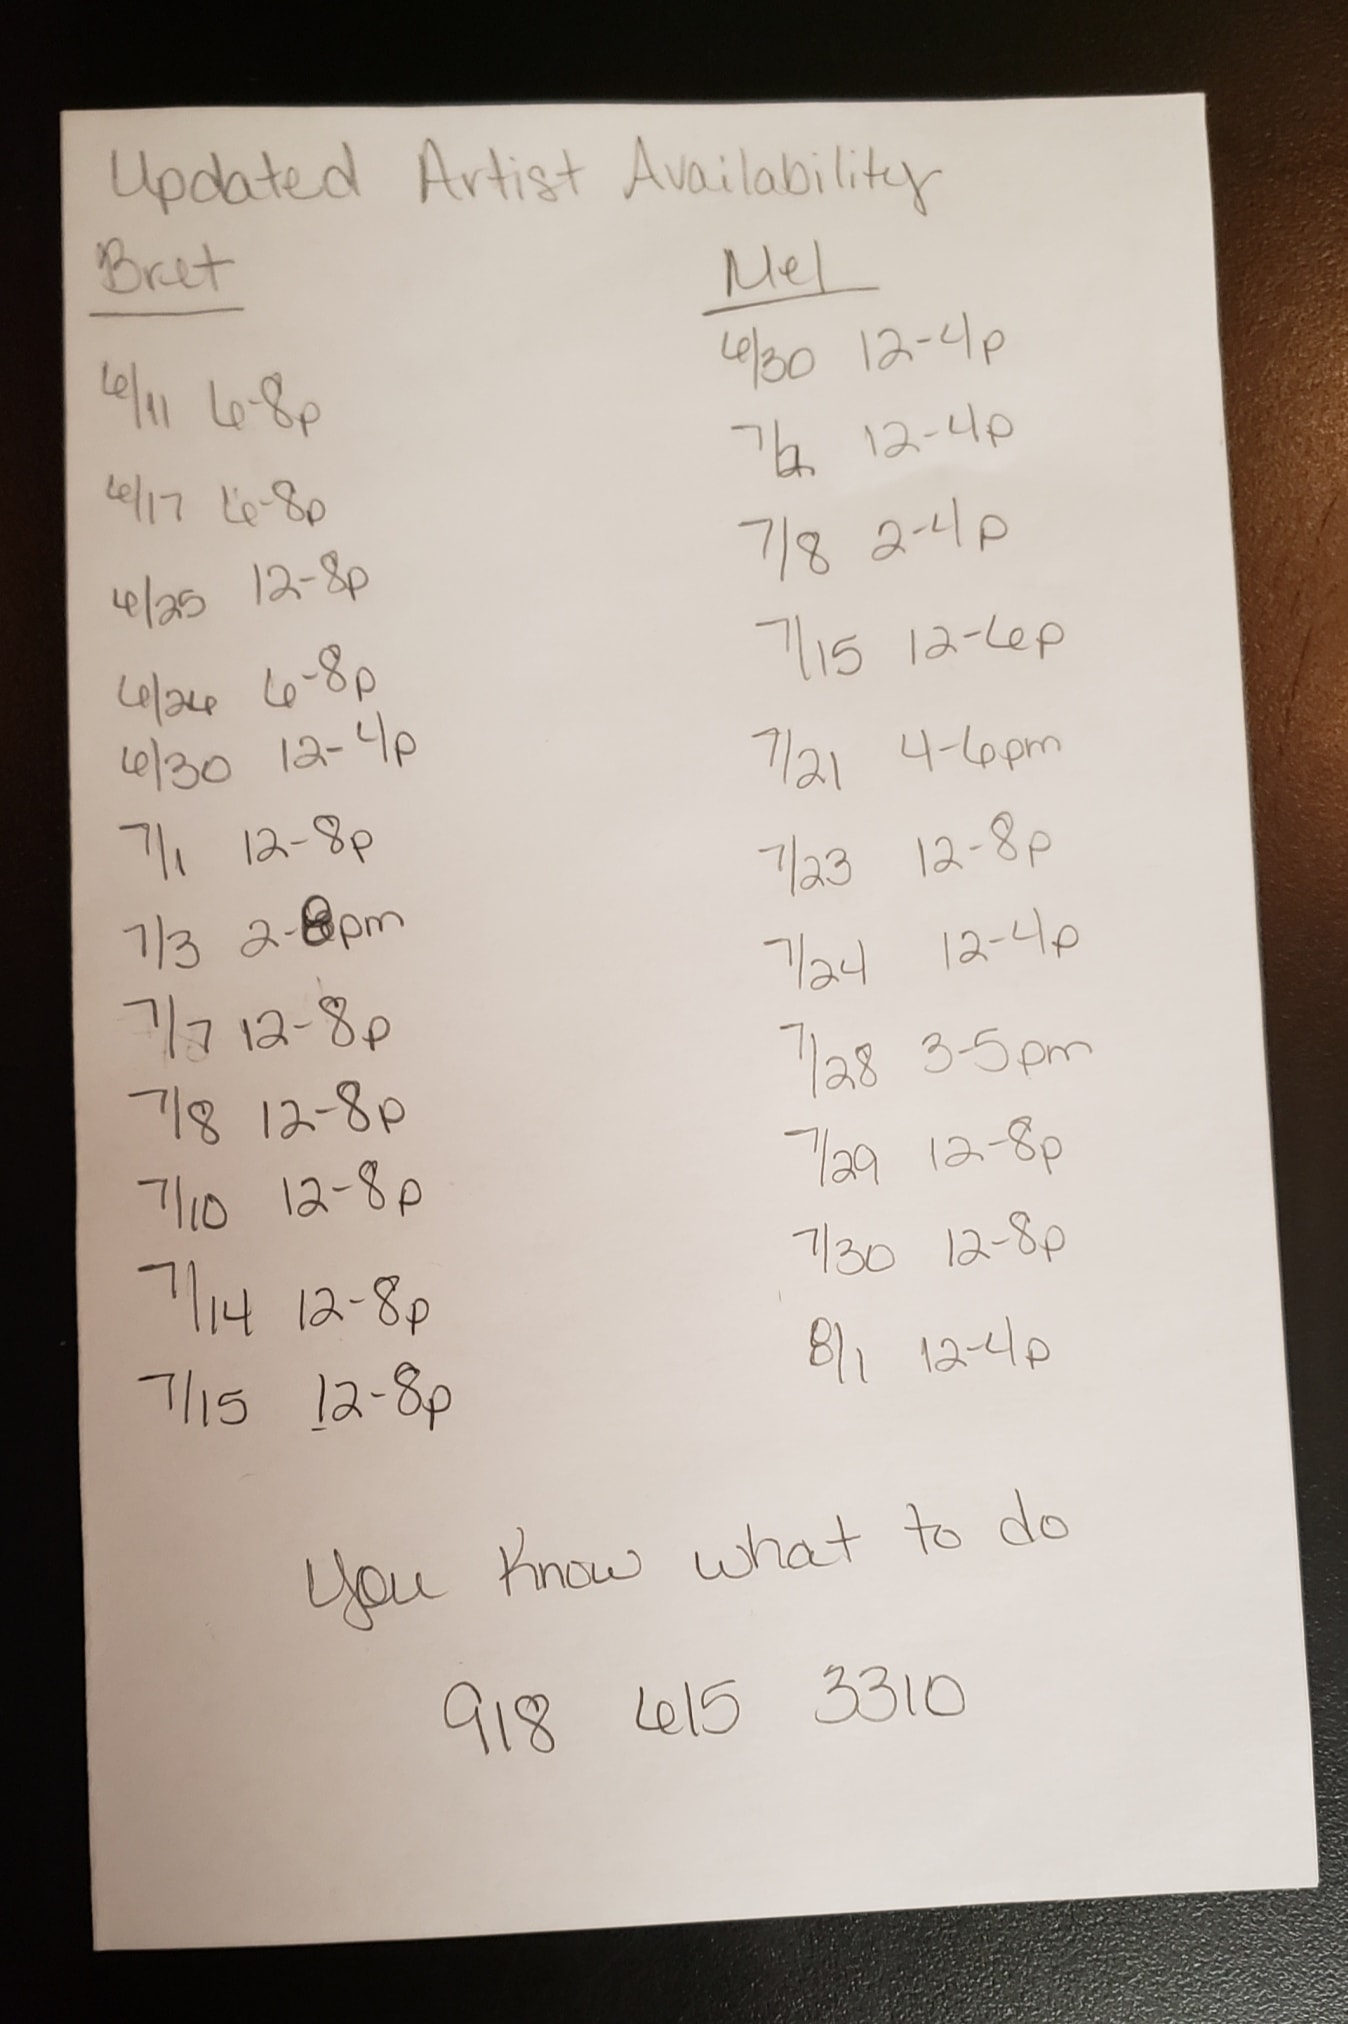 Updated Artist Availability
Bret
6/11 6-8p
6/17 6-8p
6/25 12-8p
6/26 6-8p
6/30 12-4p
7/1 12-8p
7/3 2-8pm
7/7 12-8p
7/8 12-8p
7/10 12-8p
7/14 12-8p
7/15 12-8p
Mel
6/30 12-4p
7/2 12-4p
7/8 2-4p
7/15 12-6p
7/21 4-6pm
7/23 12-8p
7/24 12-4p
7/28 3-5pm
7/29 12-8p
7/30 12-8p
8/1 12-4p
You know what to do
918 615 3310